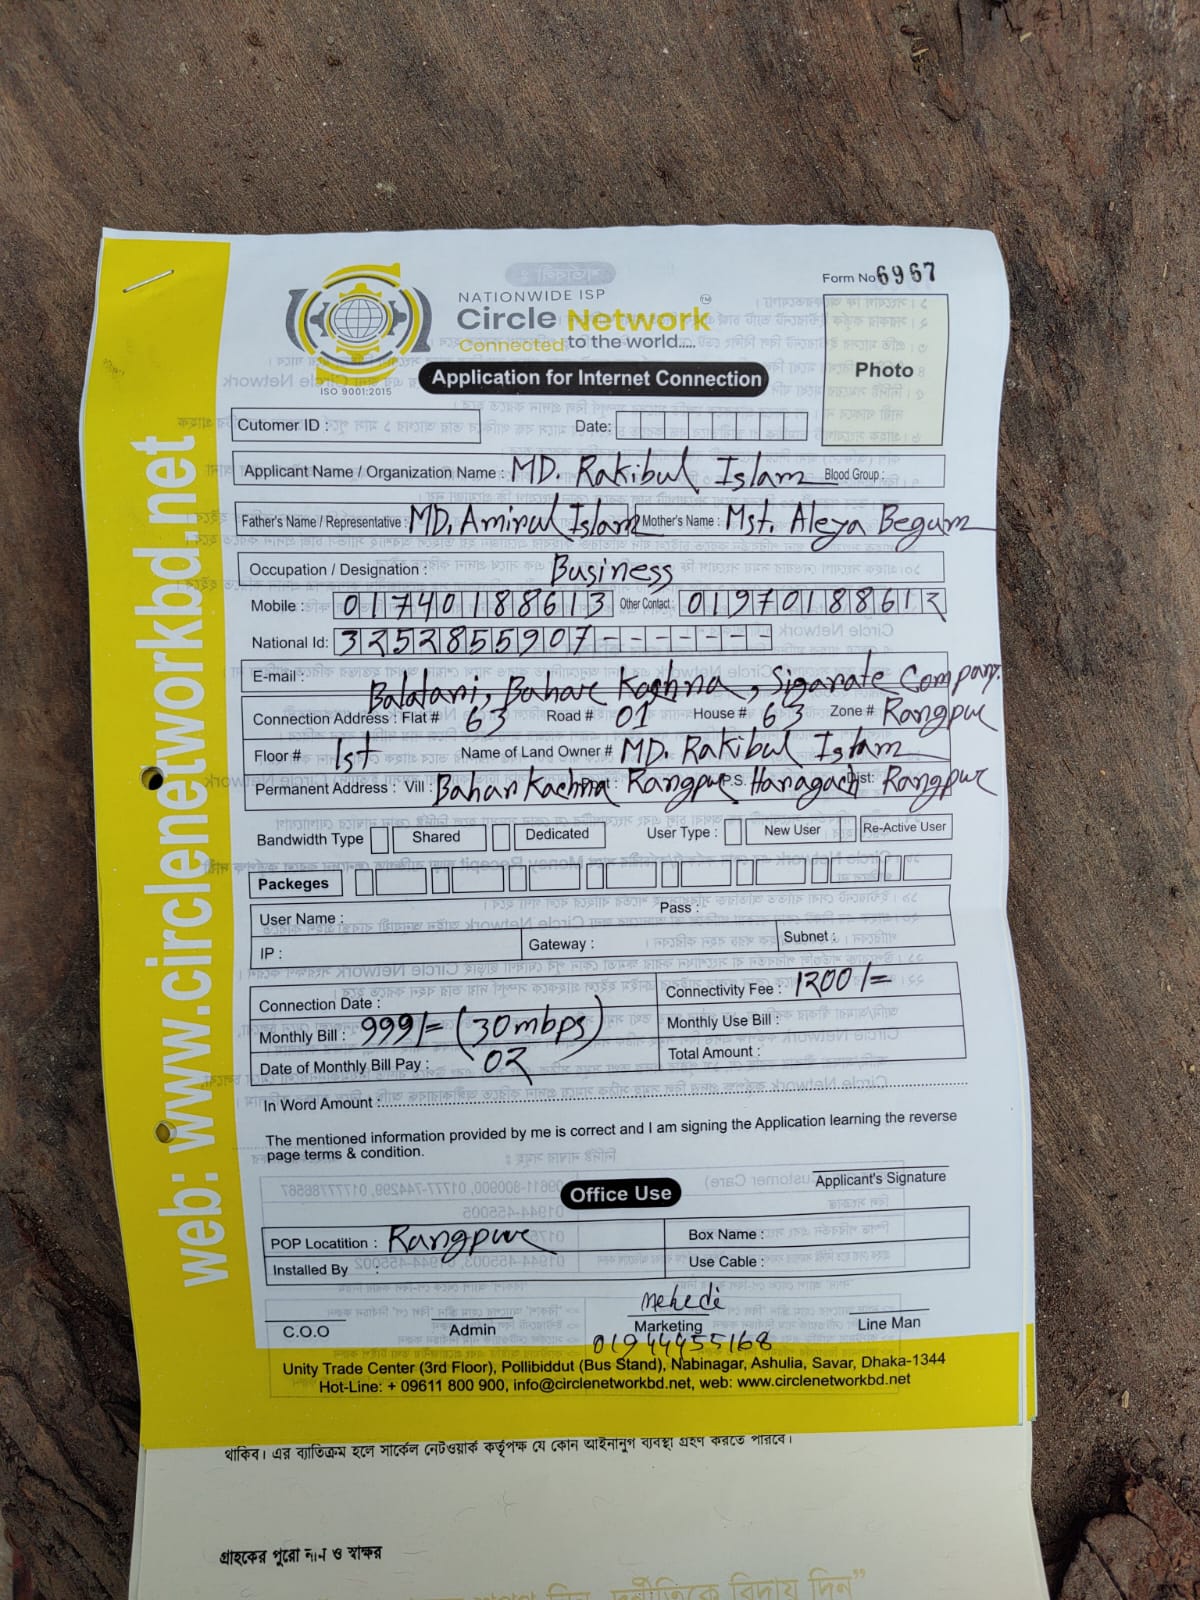 Form No 6967
NATIONWIDE ISP
Circle Network TM
Connected to the world....
ISO 9001:2015
Application for Internet Connection
Photo
Cutomer ID :
Date:
Applicant Name / Organization Name : MD. Rakibul Islam Blood Group :
Father's Name / Representative : MD. Amirul Islam Mother's Name : Mst. Aleya Begum
Occupation / Designation : Business
Mobile : 01740188613 Other Contact : 01970188612
National Id: 3252855907-------
E-mail :
Balatari, Bahar Kachna, Sigarate Company.
Connection Address : Flat # 63 Road # 01 House # 63 Zone # Rangpur
Floor # 1st Name of Land Owner # MD. Rakibul Islam
Permanent Address : Vill : Bahar Kachna Rangpur P.S. Haragach Dist: Rangpur
Bandwidth Type Shared Dedicated User Type : New User Re-Active User
Packeges
User Name : Pass :
IP : Gateway : Subnet :
Connection Date : Connectivity Fee : 1200/=
Monthly Bill : 999/= (30mbps) Monthly Use Bill :
Date of Monthly Bill Pay : 02 Total Amount :
In Word Amount :
The mentioned information provided by me is correct and I am signing the Application learning the reverse
page terms & condition.
Applicant's Signature
Office Use
POP Locatition : Rangpur Box Name :
Installed By : Use Cable :
Mehedi
C.O.O Admin Marketing Line Man
01944455168
Unity Trade Center (3rd Floor), Pollibiddut (Bus Stand), Nabinagar, Ashulia, Savar, Dhaka-1344
Hot-Line: + 09611 800 900, info@circlenetworkbd.net, web: www.circlenetworkbd.net
web: www.circlenetworkbd.net
থাকিব। এর ব্যাতিক্রম হলে সার্কেল নেটওয়ার্ক কর্তৃপক্ষ যে কোন আইনানুগ ব্যবস্থা গ্রহণ করতে পারবে।
গ্রাহকের পুরো নাম ও স্বাক্ষর
দুর্নীতিকে বিদায় দিন”